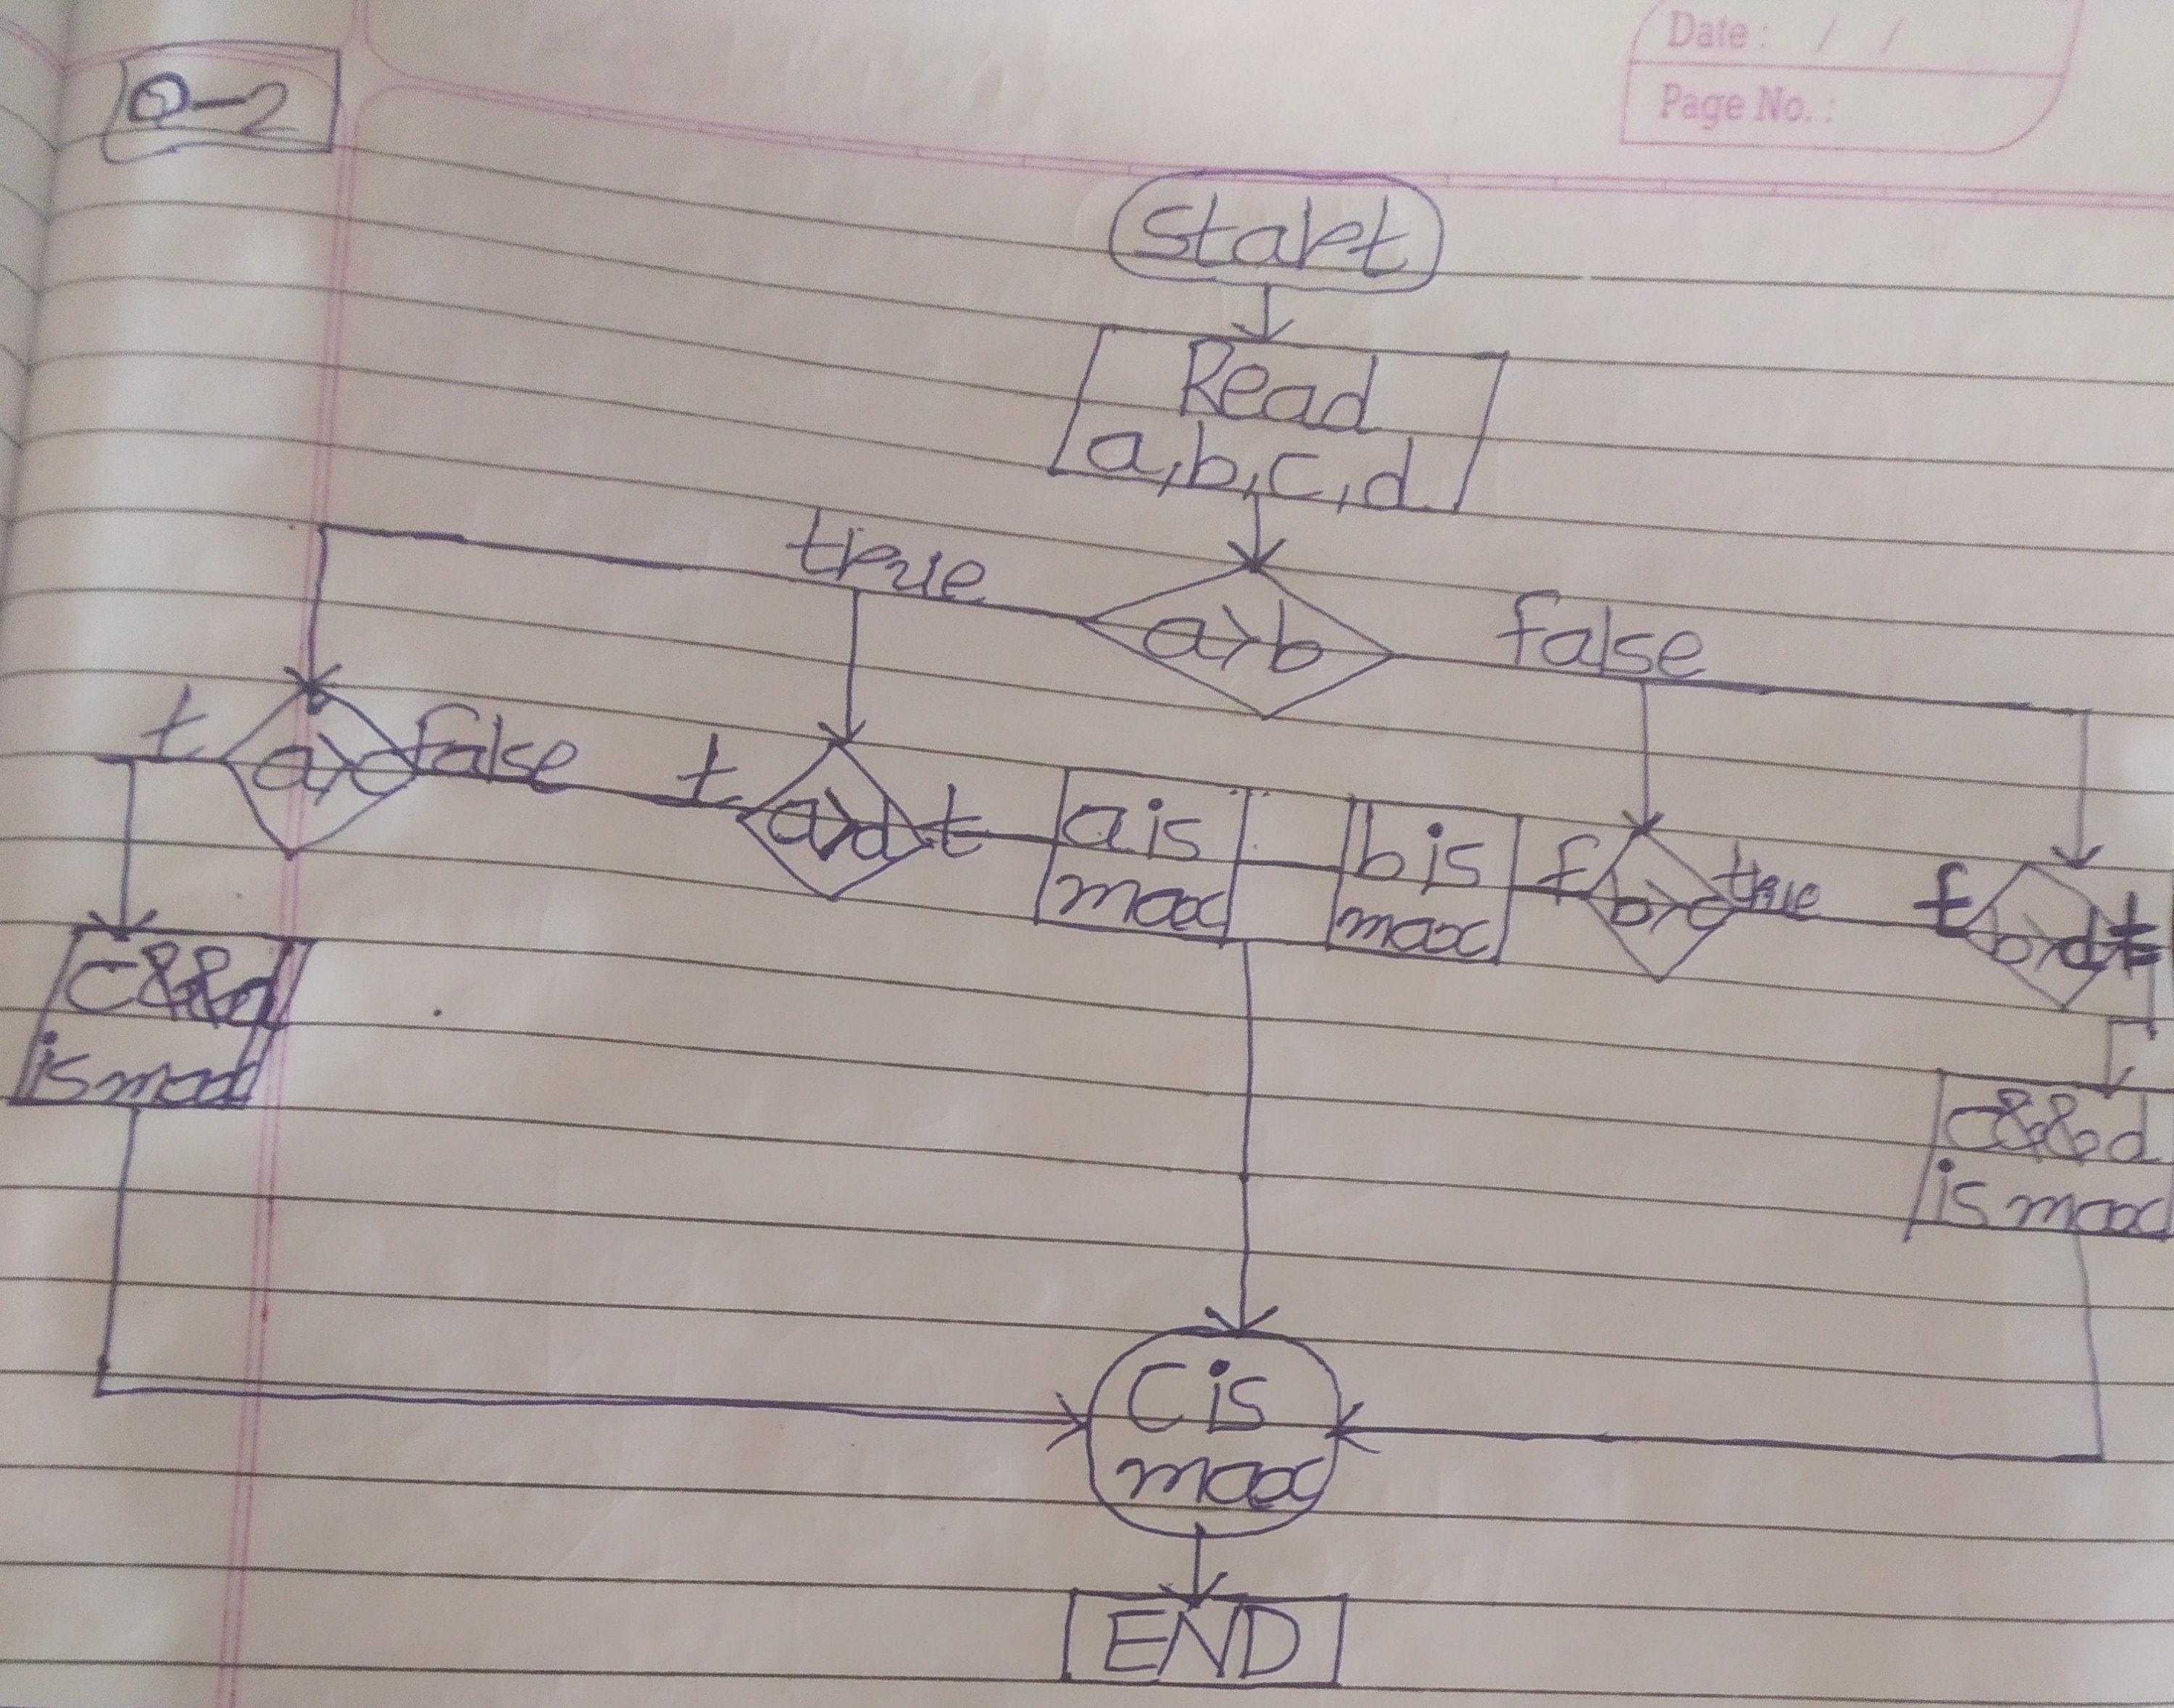 Date: / /
Page No.:
Q-2
Start
Read
a,b,c,d
true
a>b
false
t
a>c
false
t
a>d
t
a is
max
b is
max
f
b>c
true
f
b>d
t
c&&d
is max
c&&d
is max
C is
max
END